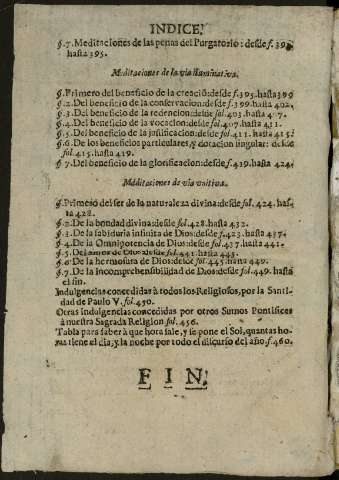 INDICE.
§.7. Meditaciones de las penas del Purgatorio: desde f.393.
hasta 395.
Meditaciones de la via iluminativa.
§. Primero del beneficio de la creaciõ: desde f.395. hasta 399
§.2. Del beneficio de la conservacion: desde f.399. hasta 402.
§.3. Del beneficio de la redencion: desde fol.403. hasta 407.
§.4. Del beneficio de la vocacion: desde fol.407. hasta 411.
§.5. Del beneficio de la justificacion: desde fol.411. hasta 415.
§.6. De los beneficios particulares, y dotacion singular: desde
fol.415. hasta 419.
§.7. Del beneficio de la glorificacion: desde f.419. hasta 424.
Meditaciones de via unitiva.
§. Primero del ser de la naturaleza divina: desde fol.424. has-
ta 428.
§.2. De la bondad divina: desde fol.428. hasta 432.
§.3. De la sabiduria infinita de Dios: desde f.423. hasta 437.
§.4. De la Omnipotencia de Dios: desde fol.437. hasta 441.
§.5. Del amor de Dios: desde fol.441. hasta 445.
§.6. De la hermosura de Dios: desde fol.445. hasta 449.
§.7. De la incomprehensibilidad de Dios: desde fol.449. hasta
el fin.
Indulgencias concedidas à todos los Religiosos, por la Santi-
dad de Paulo V. fol.450.
Otras indulgencias concedidas por otros Sumos Pontifices
à nuestra Sagrada Religion fol.456.
Tabla para saber à que hora sale, y se pone el Sol, quantas ho-
ras tiene el dia, y la noche por todo el discurso del año. f.460.
FIN.